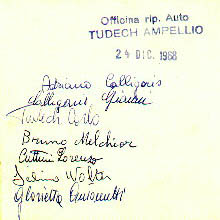 Officina rip. Auto
TUDECH AMPELLIO
24 DIC. 1968
Adriano Calligaris
Calligaris
Tudech Carlo
Bruno Melchior
Cuttini Lorenzo
Walter
Glorietta